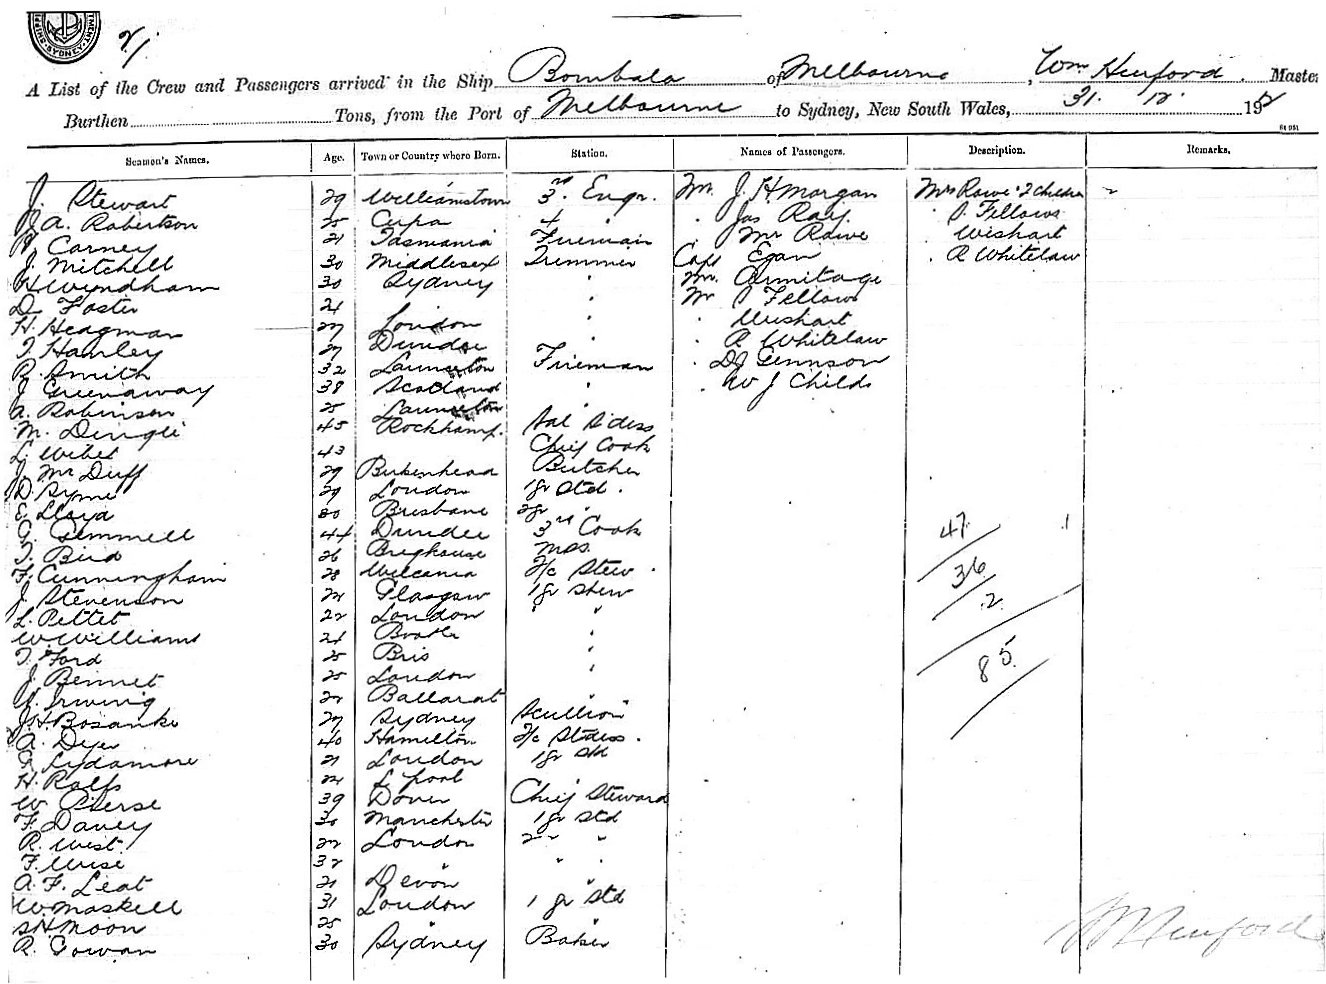 2/.
A List of the Crew and Passengers arrived in the Ship Bombala of Melbourne, Wm Hurford. Master
Burthen Tons, from the Port of Melbourne to Sydney, New South Wales, 31. 12. 191
St 951
Seamen's Names. Age. Town or Country where Born. Station. Names of Passengers. Description. Remarks.
J. Stewart 29 Williamstown 3rd Engr. Mr. J. H Morgan Mrs Rowe & 2 children
A. Robertson 25 Cupa 4 " . Jas Ray . J. Fellows
Carney 21 Tasmania Fireman . Mr Rowe Wishart
J. Mitchell 30 Middlesex Trimmer Capt Egan . R Whitelaw
H Wyndham 30 Sydney " Mr. Armitage
D. Foster 21 " Mr J Fellows
H. Heagman 27 London " . Wishart
T Hanley 27 Dundee " . R Whitelaw
R. Smith 32 Launceton Fireman . D J Gennson
J Greenaway 38 Scotland " . W J Childs
A. Robinson 25 Launceton
M. Dingle 45 Rockhamp. Sal Stdess
L. Wibet 43 Chief Cook
J Mc Duff 29 Birkenhead Butcher
D. Syme 29 London 1gr Std.
E. Lloyd 20 Brisbane 2gr "
Gemmell 44 Dundee 3rd Cook
T. Bird 26 Brighouse Mss.
F. Cunningham 28 Wilcania F/c Stew.
J Stevenson 22 Glasgow 1gr Stew
L. Pettet 22 London " "
W Williams 21 Bootle "
T. Ford 25 Bris "
J Bennet 25 London "
Irwing 22 Ballarat "
J. H. Bosanko 27 Sydney Scullion
A. Dyer 40 Hamilton F/c Stdess.
Lydamore 21 London 1gr Std
H. Rolfs 22 L'pool
W. Pierse 39 Dover Chief Steward
F. Davey 30 Manchester 1gr Std
R. West 22 London 2 " "
F. Wise 32 " " "
A. F. Leat 21 Devon
W. Maskell 31 London 1 gr Std
S H Moon 25
R. Gowan 30 Sydney Baker
47
36
2
85
Wm Hurford